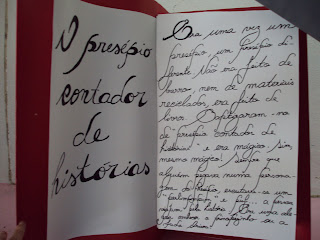 O presépio
contador
de
histórias
Era uma vez um
presépio, um presépio di-
ferente. Não era feito de
barro, nem de materiais
reciclados, era feito de
livro. Batizaram-no
de "presépio contador de
histórias" e era mágico. Sim,
mesmo mágico! Sempre que
alguém pegava numa persona-
gem do presépio, escutava-se um
e a pessoa
história. Era uma ale-